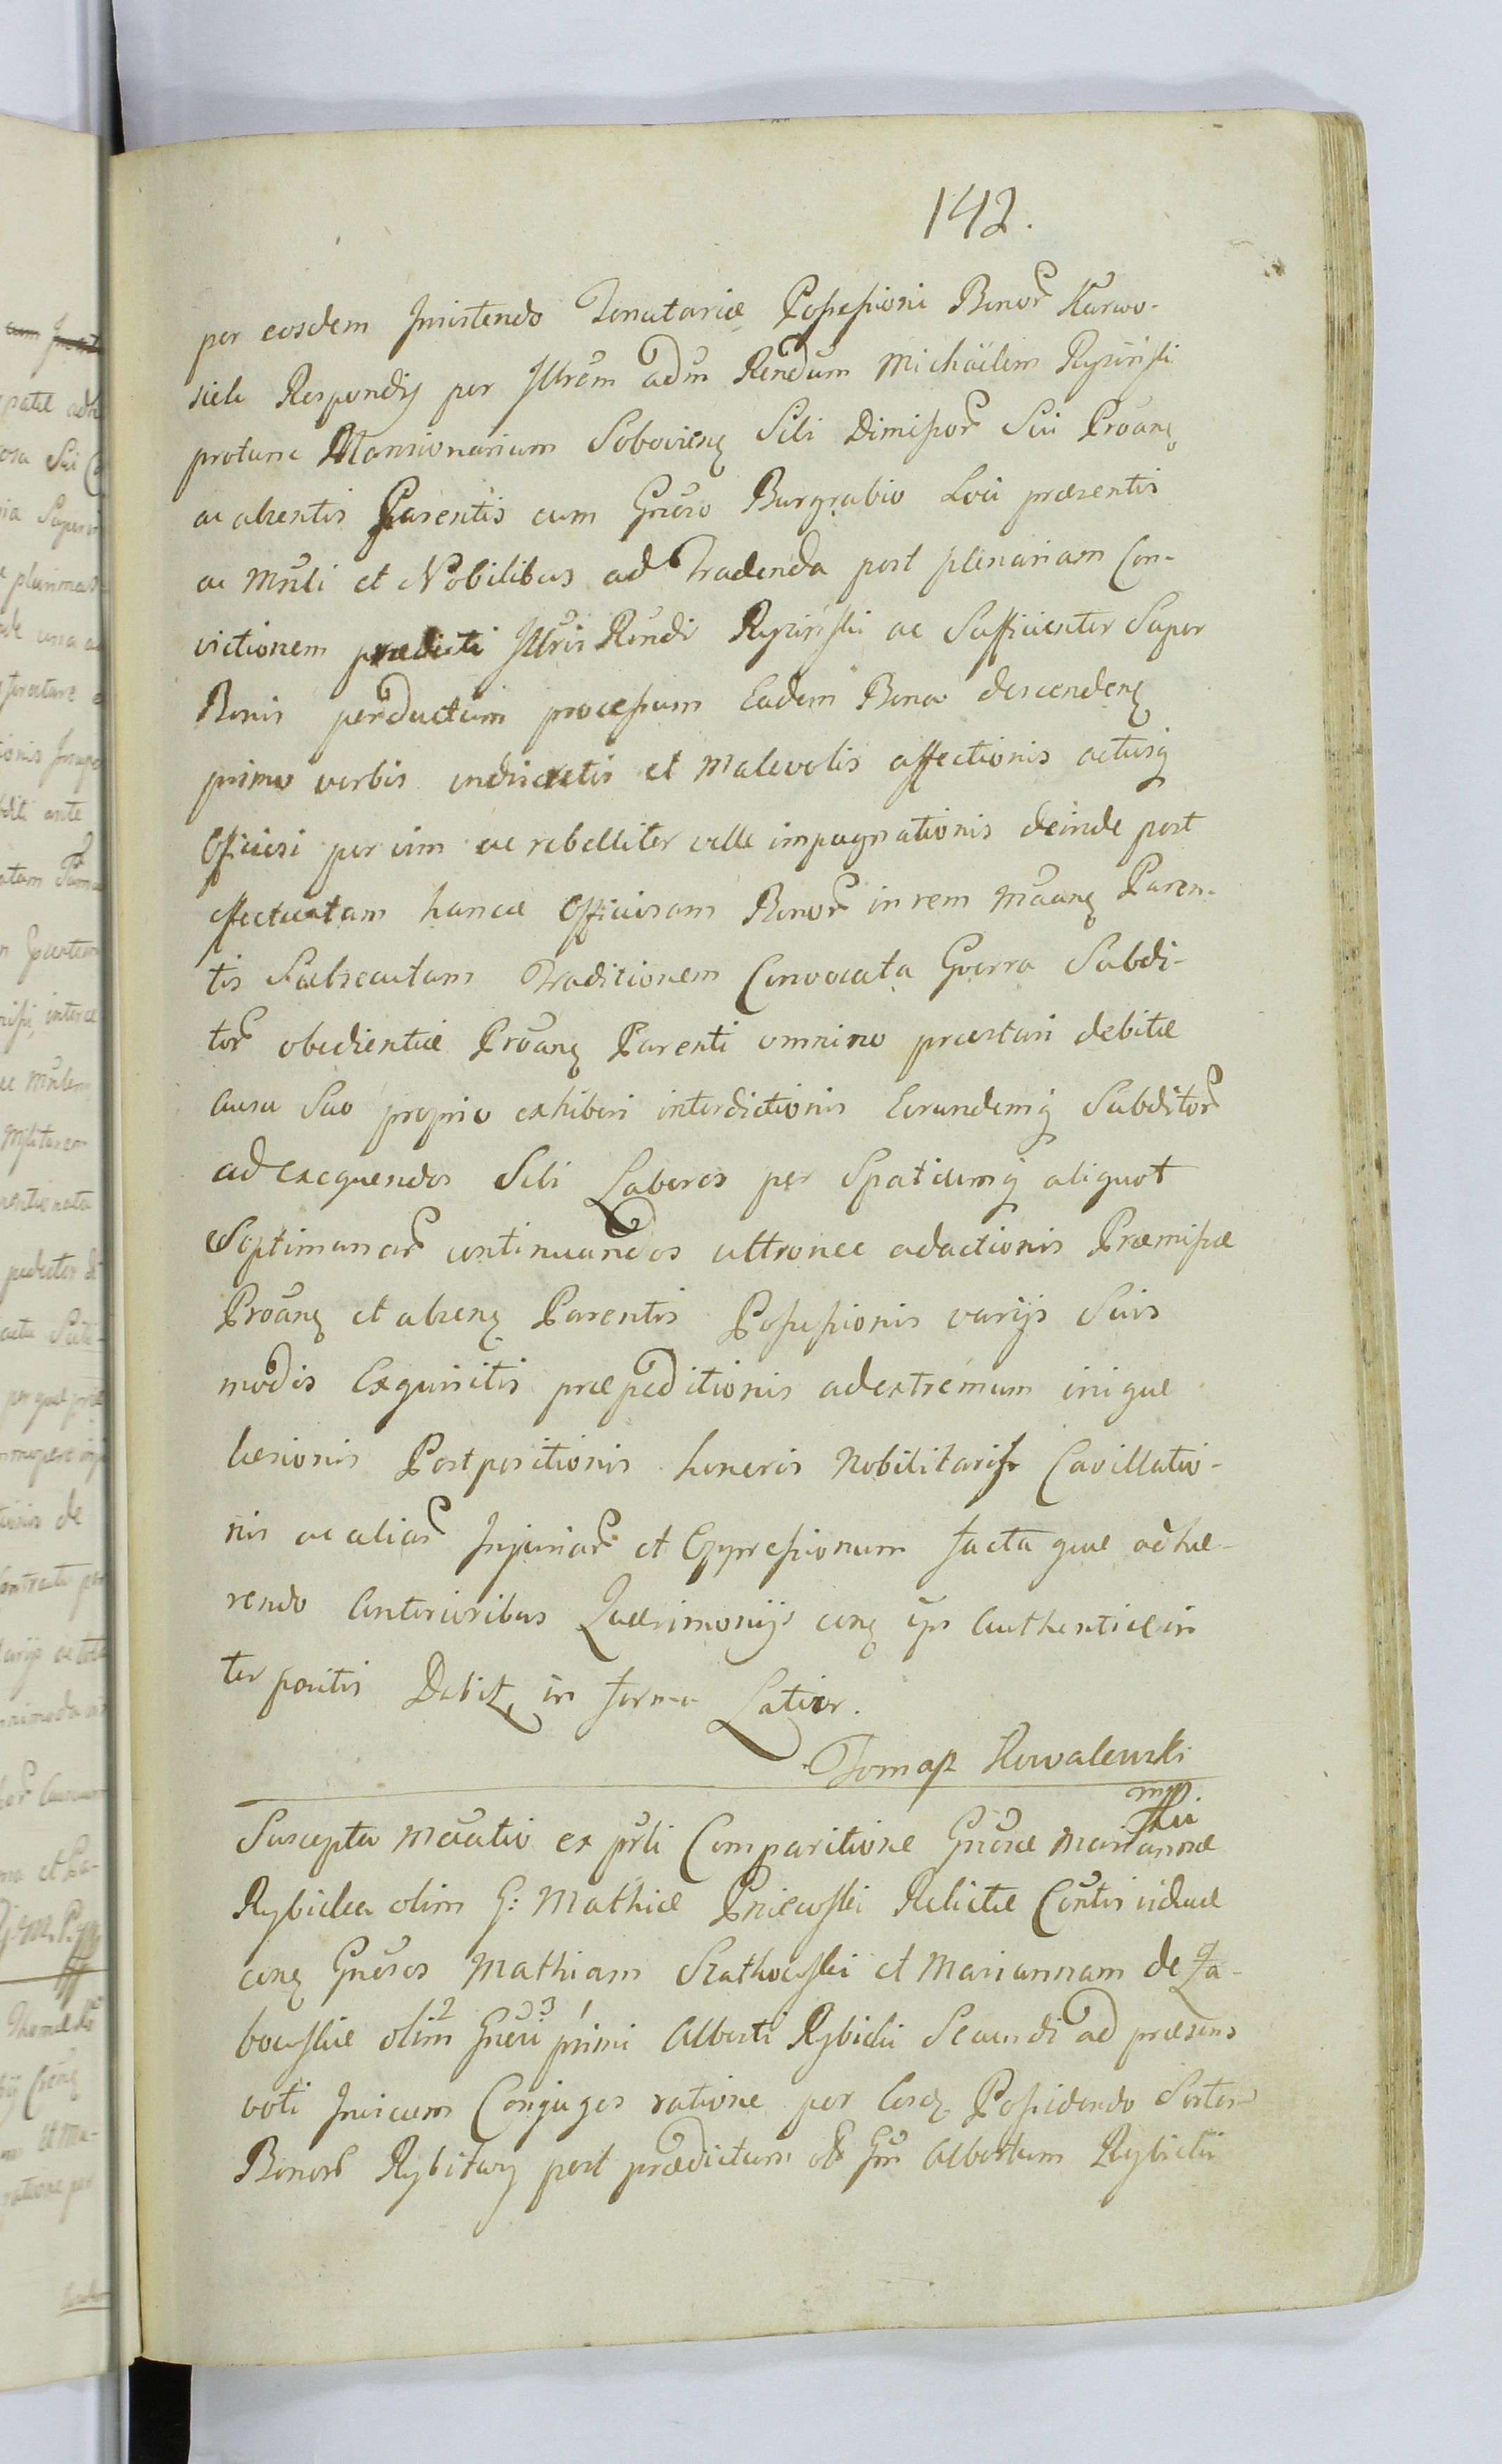 142.
per eosdem Innitendo Tenutariæ Possessioni Bonor Karwo-
siele Respondis per Illrem adm Rendum Michäelem Rypiński
protunc Mansionarium Sobociens Sibi Dimissor Sui Proang
ac absentis Parentis cum Gnoso Burgrabio Loci præsentis
ac Mnli et Nobilibus ad Tradenda post plenariam Con-
victionem prædicti Illris Rendi Rypiński ac Sufficienter Super
Bonis perductum processum Eadem Bona descendens
primo verbis indiscretis et malevolis affectionis actusq
Officiosi per vim ac rebelliter velle impugnationis deinde post
effectuatam hancce Officiosam Bonor in rem Maang Paren-
tis Subsecutam Traditionem Convocata Gverra Subdi-
tor obedientiæ Proang Parenti omnino præstari debitæ
Ausu Suo proprio exhiberi interdictionis Eorundemq Subditor
ad exequendos Sibi Labores per Spatiumq aliquot
Septimanar continuandos ultronee adactionis Præmissæ
Proang et absens Parentis Possessionis varijs Suis
modis Exquisitis præpeditionis ad extremum inique
læsionis Postpositionis honoris Nobilitaris Cavillatio-
nis ac aliar Injuriar et Oppressionum facta quæ adhæ-
rendo Anterioribus Quærimonijs cong ips Authentice in
ter positis Dabit, in forma Latior.
Tomasz Kowalewski
mpp.
Suscepta Mãatio ex prli Comparitione Gnosæ Mariannæ
Rybicka olim G: Mathiæ Pniewski Relictæ Contis viduæ
cong Gnosos Mathiam Rathowski et Mariannam de Za-
bowskie olim 2 Gnosi 3 primi 1 Alberti Rybicki Secundi ad præsens
voti Invicem Conjuges ratione per Eosd Possidendo Sortes
Bonor Rybitwy post prædictum ol Gm Albertum Rybicki